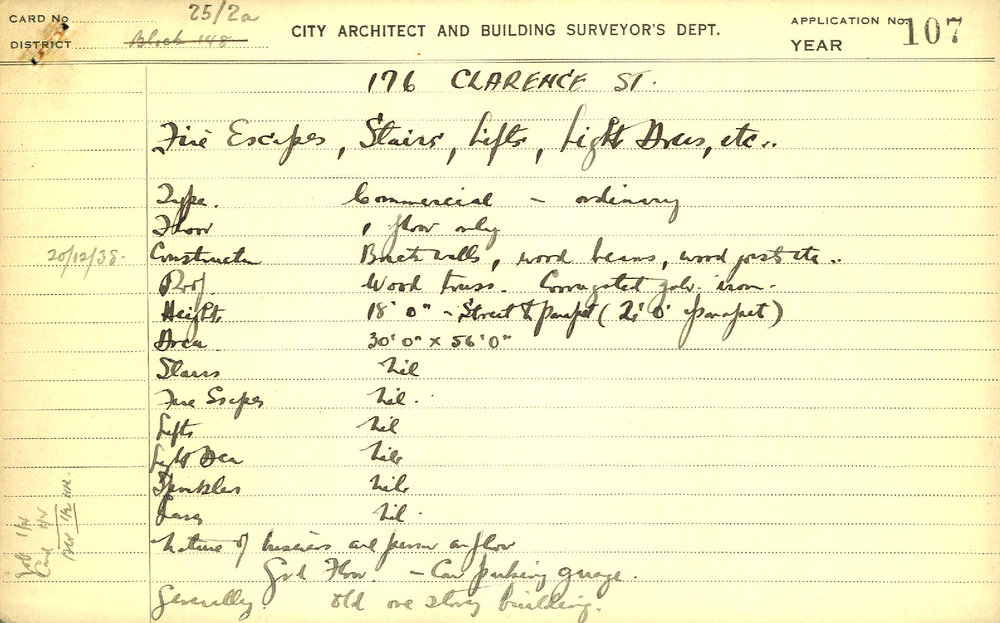 CARD No 25/2a
CITY ARCHITECT AND BUILDING SURVEYOR'S DEPT.
APPLICATION No. 107
DISTRICT Block 148
YEAR
176 CLARENCE ST.
Fire Escapes, Stairs, Lifts, Light Areas, etc..
Type. Commercial - ordinary
Floor 1 floor only
20/12/38. Constructn Brick walls, wood beams, wood posts etc..
Roof. Wood truss. Corrugated galv. iron.
Height 18' 0" - Street to parapet (2' 0" parapet)
Area 30' 0" x 56' 0"
Stairs nil
Fire Escapes nil.
Lifts nil
Light Area nil
Sprinklers nil
nil.
Nature of business and person on floor
Grd Floor. - Car parking garage.
Generally. Old one storey building.